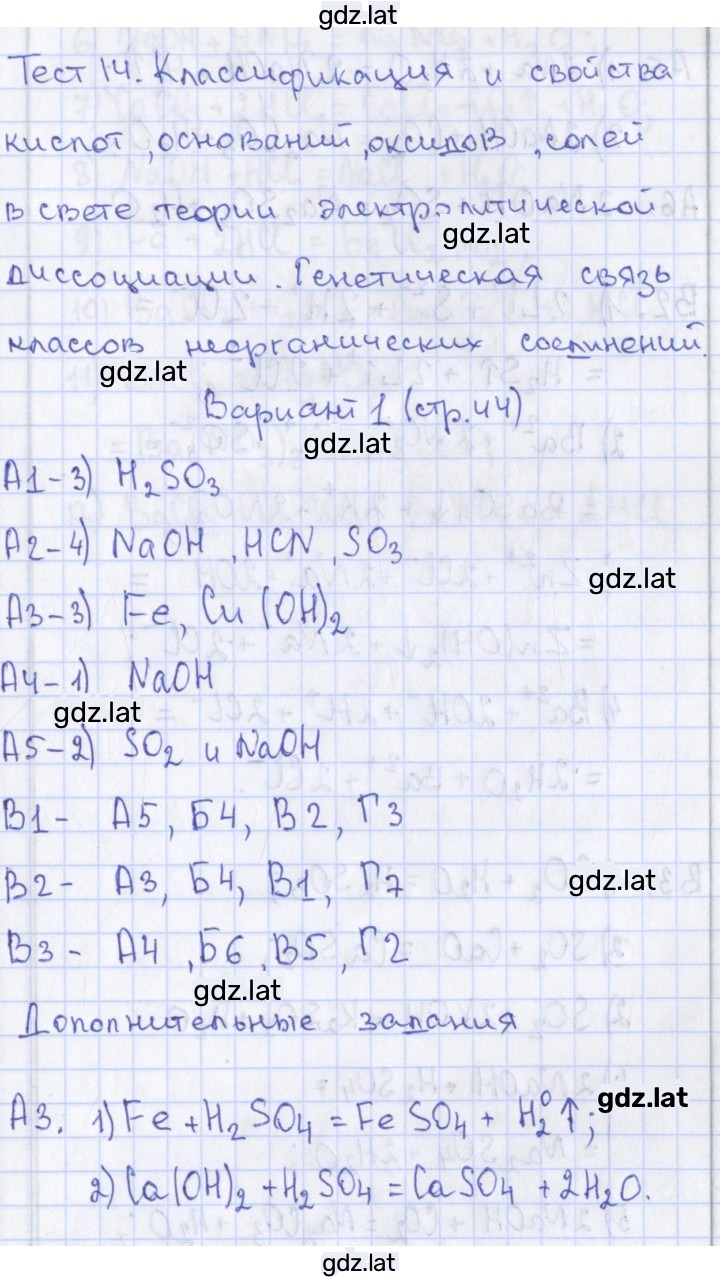 gdz.lat
Тест 14. Классификация и свойства
кислот, оснований, оксидов, солей
в свете теории электролитической
gdz.lat
диссоциации. Генетическая связь
классов неорганических соединений.
gdz.lat
Вариант 1 (стр.44)
gdz.lat
А1-3) H₂SO₃
А2-4) NaOH, HCN, SO₃
gdz.lat
А3-3) Fe, Cu(OH)₂
А4-1) NaOH
gdz.lat
А5-2) SO₂ и NaOH
В1- А5, Б4, В2, Г3
В2- А3, Б4, В1, Г7
gdz.lat
В3- А4, Б6, В5, Г2
gdz.lat
Дополнительные задания
А3. 1) Fe + H₂SO₄ = FeSO₄ + H₂⁰↑;
gdz.lat
2) Ca(OH)₂ + H₂SO₄ = CaSO₄ + 2H₂O.
gdz.lat